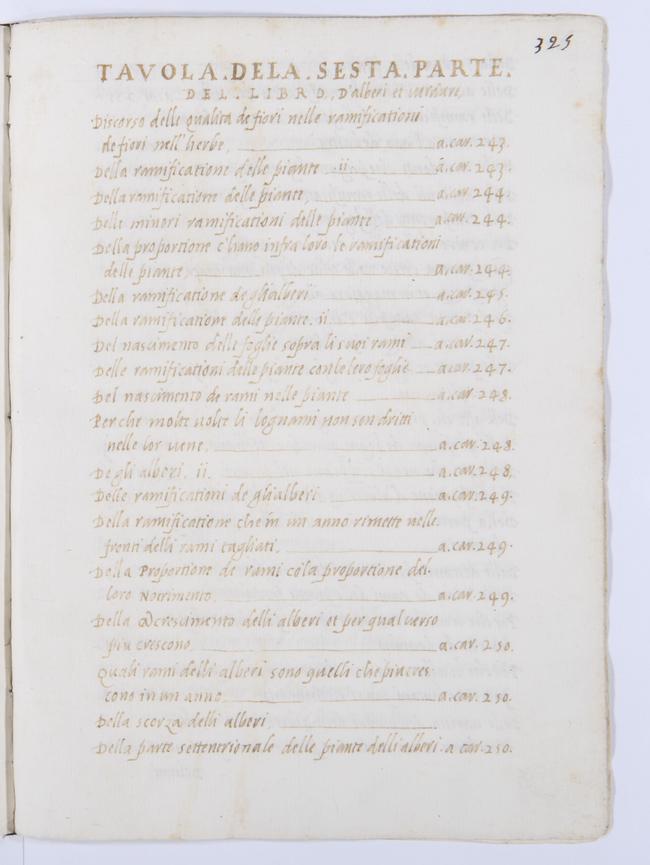 325
TAVOLA.DELA.SESTA.PARTE.
DEL.LIBRO. D'alberi et verdure,
Discorso delle qualità de fiori nelle ramificationi
de fiori nell'herbe, a.car.243.
Della ramificatione delle piante .ii. a.car.243.
Della ramificatione delle piante, a.car.244.
Delle minori ramificationi delle piante a.car.244.
Della proportione c'hano infra loro le ramificationi
delle piante, a.car.244.
Della ramificatione de gli alberi a.car.245.
Della ramificatione delle piante. ii a.car.246.
Del nascimento delle foglie sopra li suoi rami a.car.247.
Delle ramificationi delle piante con le lero foglie a.car.247.
Del nascimento de rami nelle piante a.car.248.
Perche molte volte li legnami non sen dritti
nelle lor vene, a.car.248.
De gli alberi. ii. a.car.248.
Delle ramificationi de gli alberi a.car.249.
Della ramificatione che in un anno rimette nelle
fronti delli rami tagliati, a.car.249.
Della Proportione de rami cō la proportione del
loro Notrimento, a.car.249.
Della Acrescimento delli alberi et per qual verso
piu crescono, a.car.250.
Quali rami delli alberi sono quelli che piu cres
cono in un anno a.car.250.
Della scorza delli alberi
Della parte settentrionale delle piante delli alberi. a car.250.